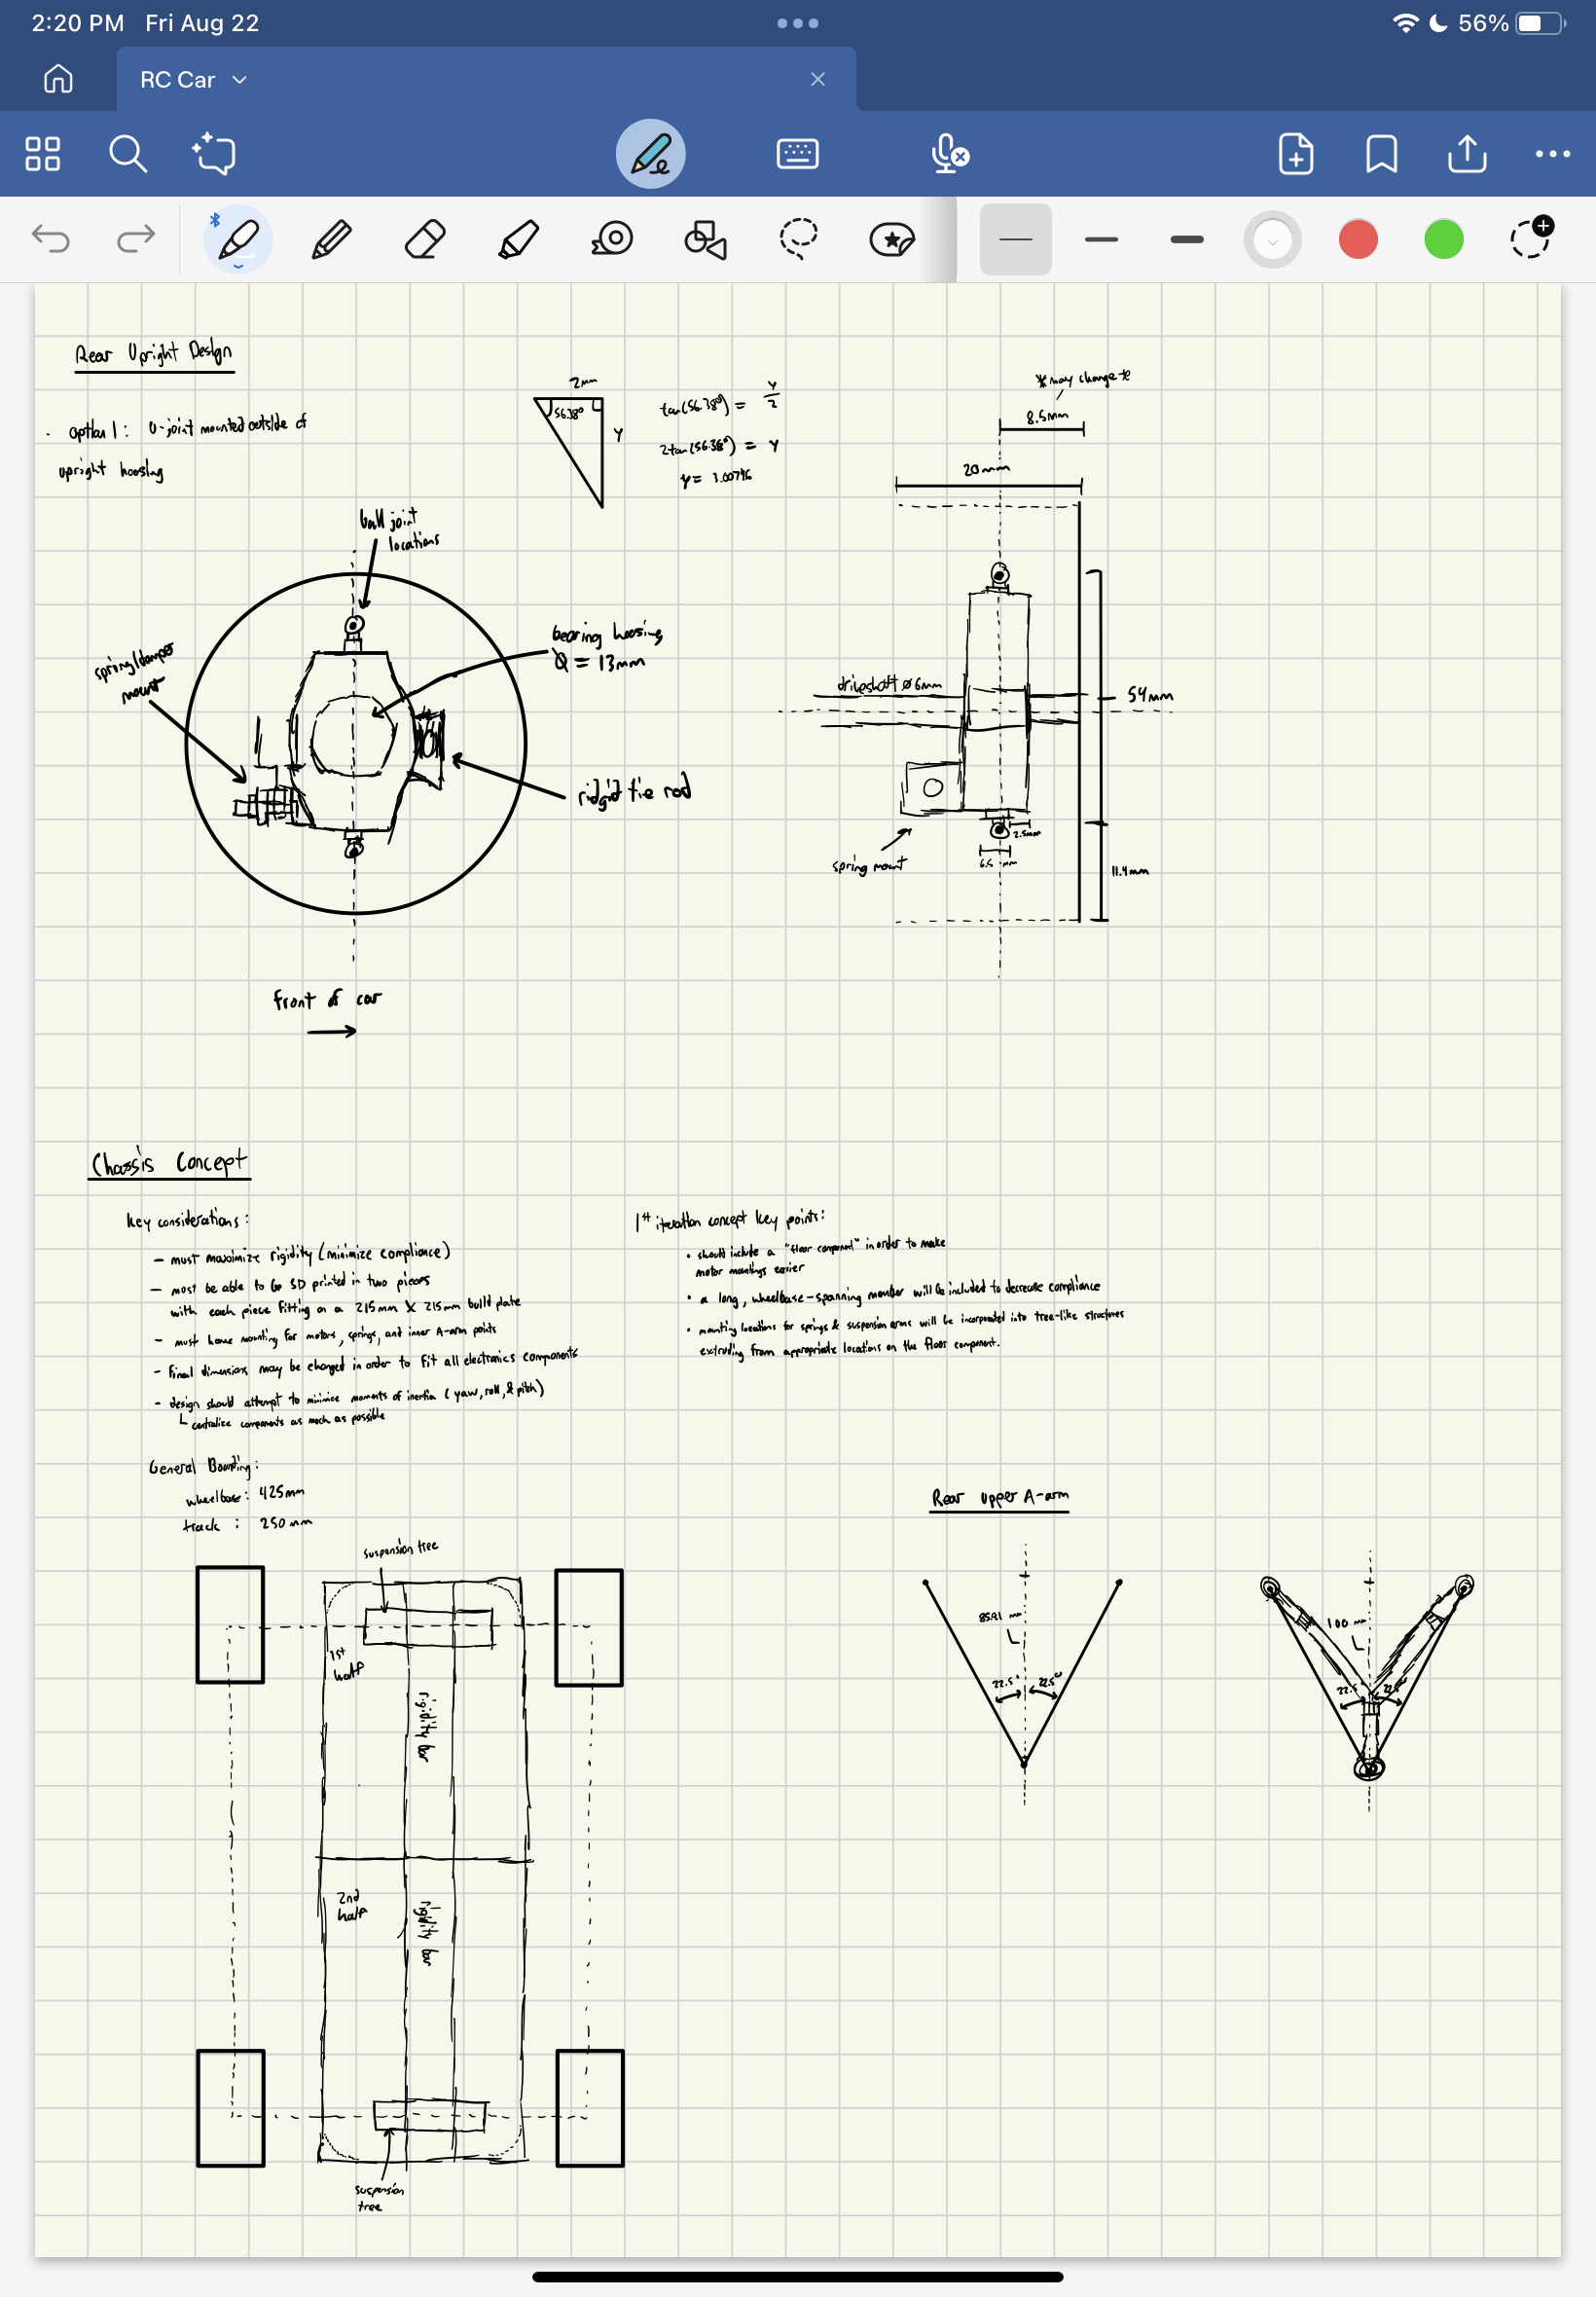 2:20 PM Fri Aug 22
56%
RC Car
Rear Upright Design
- option 1: U-joint mounted outside of
upright housing
2mm
56.38°
y
tan(56.38°) = y/2
2tan(56.38°) = y
y = 3.00796
*may change*
8.5mm
20mm
ball joint
locations
spring/damper
mount
bearing housing
Ø = 13mm
ridgid tie rod
driveshaft ø6mm
54mm
2.5mm
6.5 mm
spring mount
11.4mm
front of car
Chassis Concept
Key considerations:
- must maximize rigidity (minimize compliance)
- must be able to be 3D printed in two pieces
with each piece fitting on a 215mm X 215mm build plate
- must have mounting for motors, springs, and inner A-arm points
- final dimensions may be changed in order to fit all electronics components
- design should attempt to minimize moments of inertia (yaw, roll, & pitch)
centralize components as much as possible
1st iteration concept key points:
• should include a "floor component" in order to make
motor mountings easier
• a long, wheelbase-spanning member will be included to decrease compliance
• mounting locations for springs & suspension arms will be incorporated into tree-like structures
extruding from appropriate locations on the floor component.
General Bounding:
wheelbase: 425mm
track : 250mm
suspension tree
1st
half
rigidity bar
2nd
half
rigidity bar
suspension
tree
Rear upper A-arm
mm
22.5° 22.5°
100 mm
22.5° 22.5°